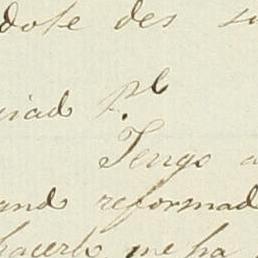 dose des su
iad pl
Tengo a
and reformad
hacerlo me ha